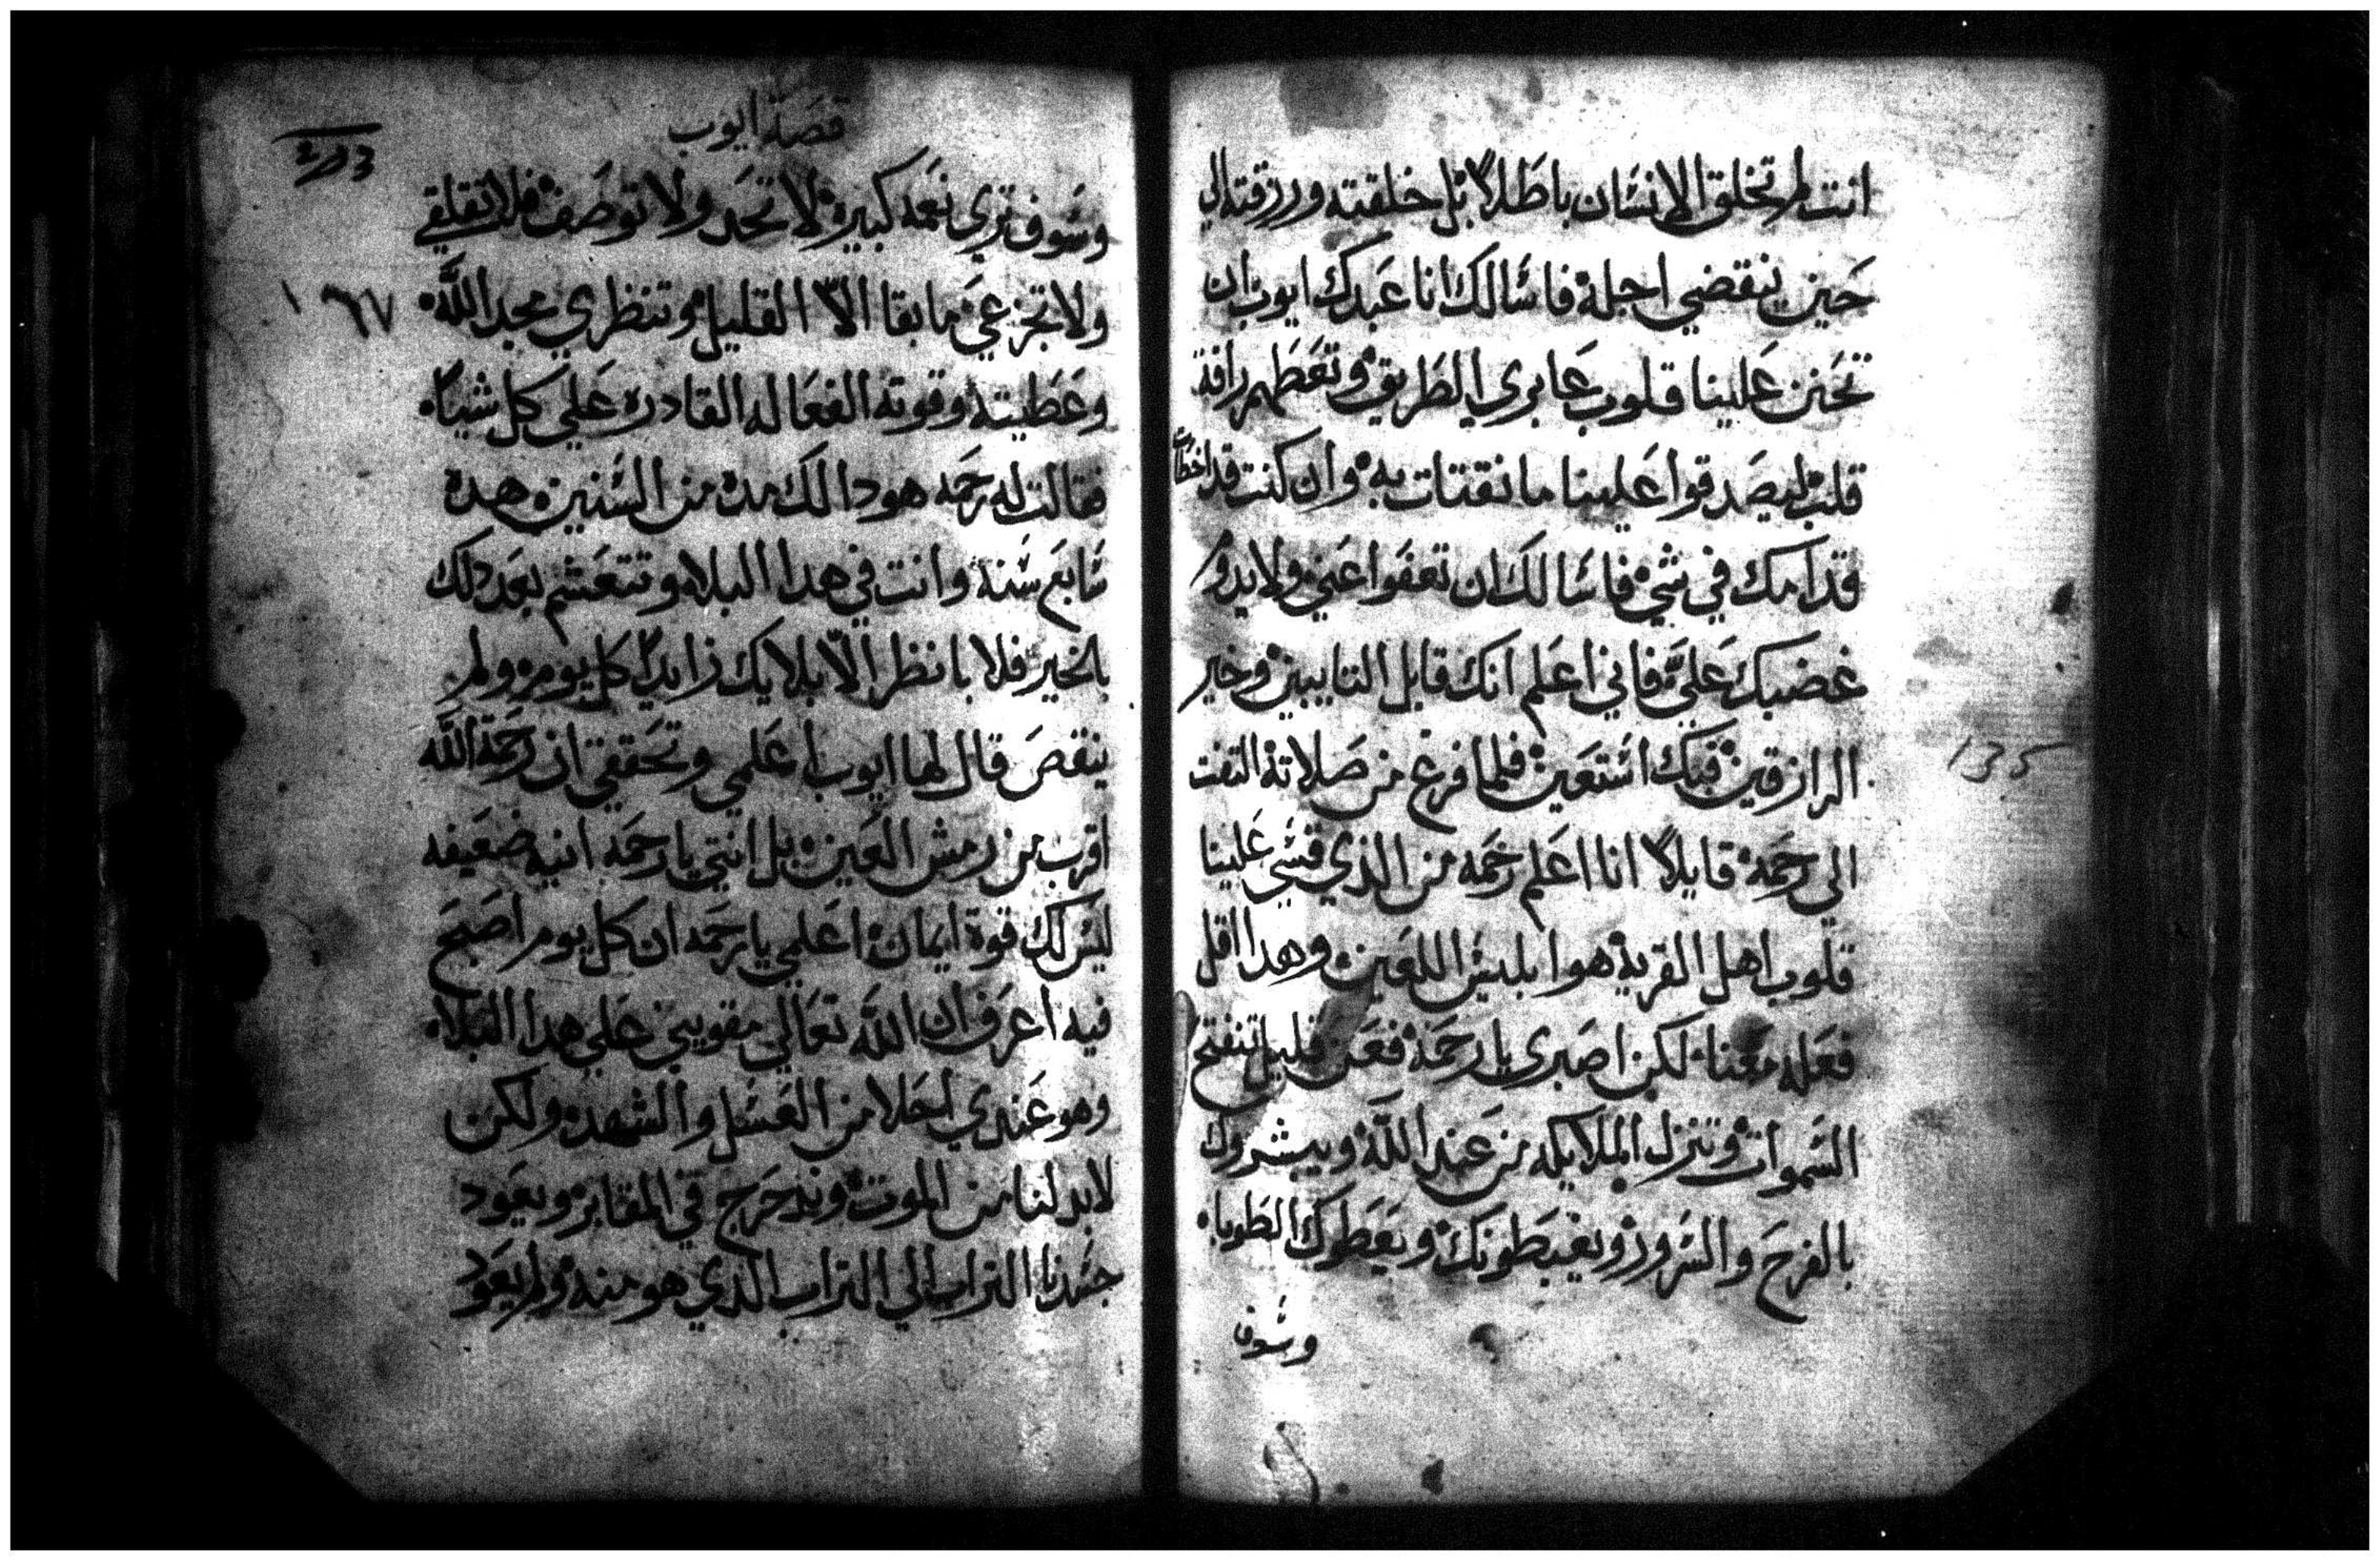 انت لم تخلق الانسان باطلاً بل خلقته ورزقته الي
حين ينقضي اجله فاسالك انا عبدك ايوب ان
تحنن علينا قلوب عابري الطريق وتعطهم رافة
قلب ليصدقوا علينا ما نقتات به وان كنت قد اخطات
قدامك في شي فاسالك ان تعفوا عني ولا يدوم
غضبك علي فاني اعلم انك قابل التايبين وخير
الرازقين فبك استعين فلما فرغ من صلاته التفت
الي رحمه قايلاً انا اعلم رحمه من الذي قسي علينا
قلوب اهل القريه هو ابليس اللعين وهدا اقل
فعله معنا لكن اصبري يا رحمه فعن قليل تنفتح
السموات وتنزل الملايكه من عند الله ويبشروك
بالفرح والسرور ويغبطونك ويعطوك الطوبا
وسوف
قصة ايوب
وسوف تري نعمه كبيره لا تحد ولا توصف فلا تقلقي
ولا تجزعي ما بقا الا القليل وتنظري مجد الله
١٦٧
وعطيته وقوته الفعاله القادره علي كل شياً
فقالت له رحمه هودا لك مده من السنين هده
سابع سنة وانت في هدا البلا وتتعشم بعد دلك
بالخير فلا بانظر الا بلايك زايداً كل يوم ولم
ينقص قال لها ايوب اعلمي وتحققي ان رحمة الله
اقرب من رمش العين بل انتي يا رحمه انيه ضعيفه
ليس لك قوة ايمان اعلمي يا رحمه ان كل يوم اصبح
فيه اعرف ان الله تعالي مقويني علي هدا البلا
وهو عندي احلا من العسل والشهد ولكن
لابد لنا من الموت وندحرج في المقابر ويعود
جسدنا التراب الي التراب الذي هو منه ولم يعود
135